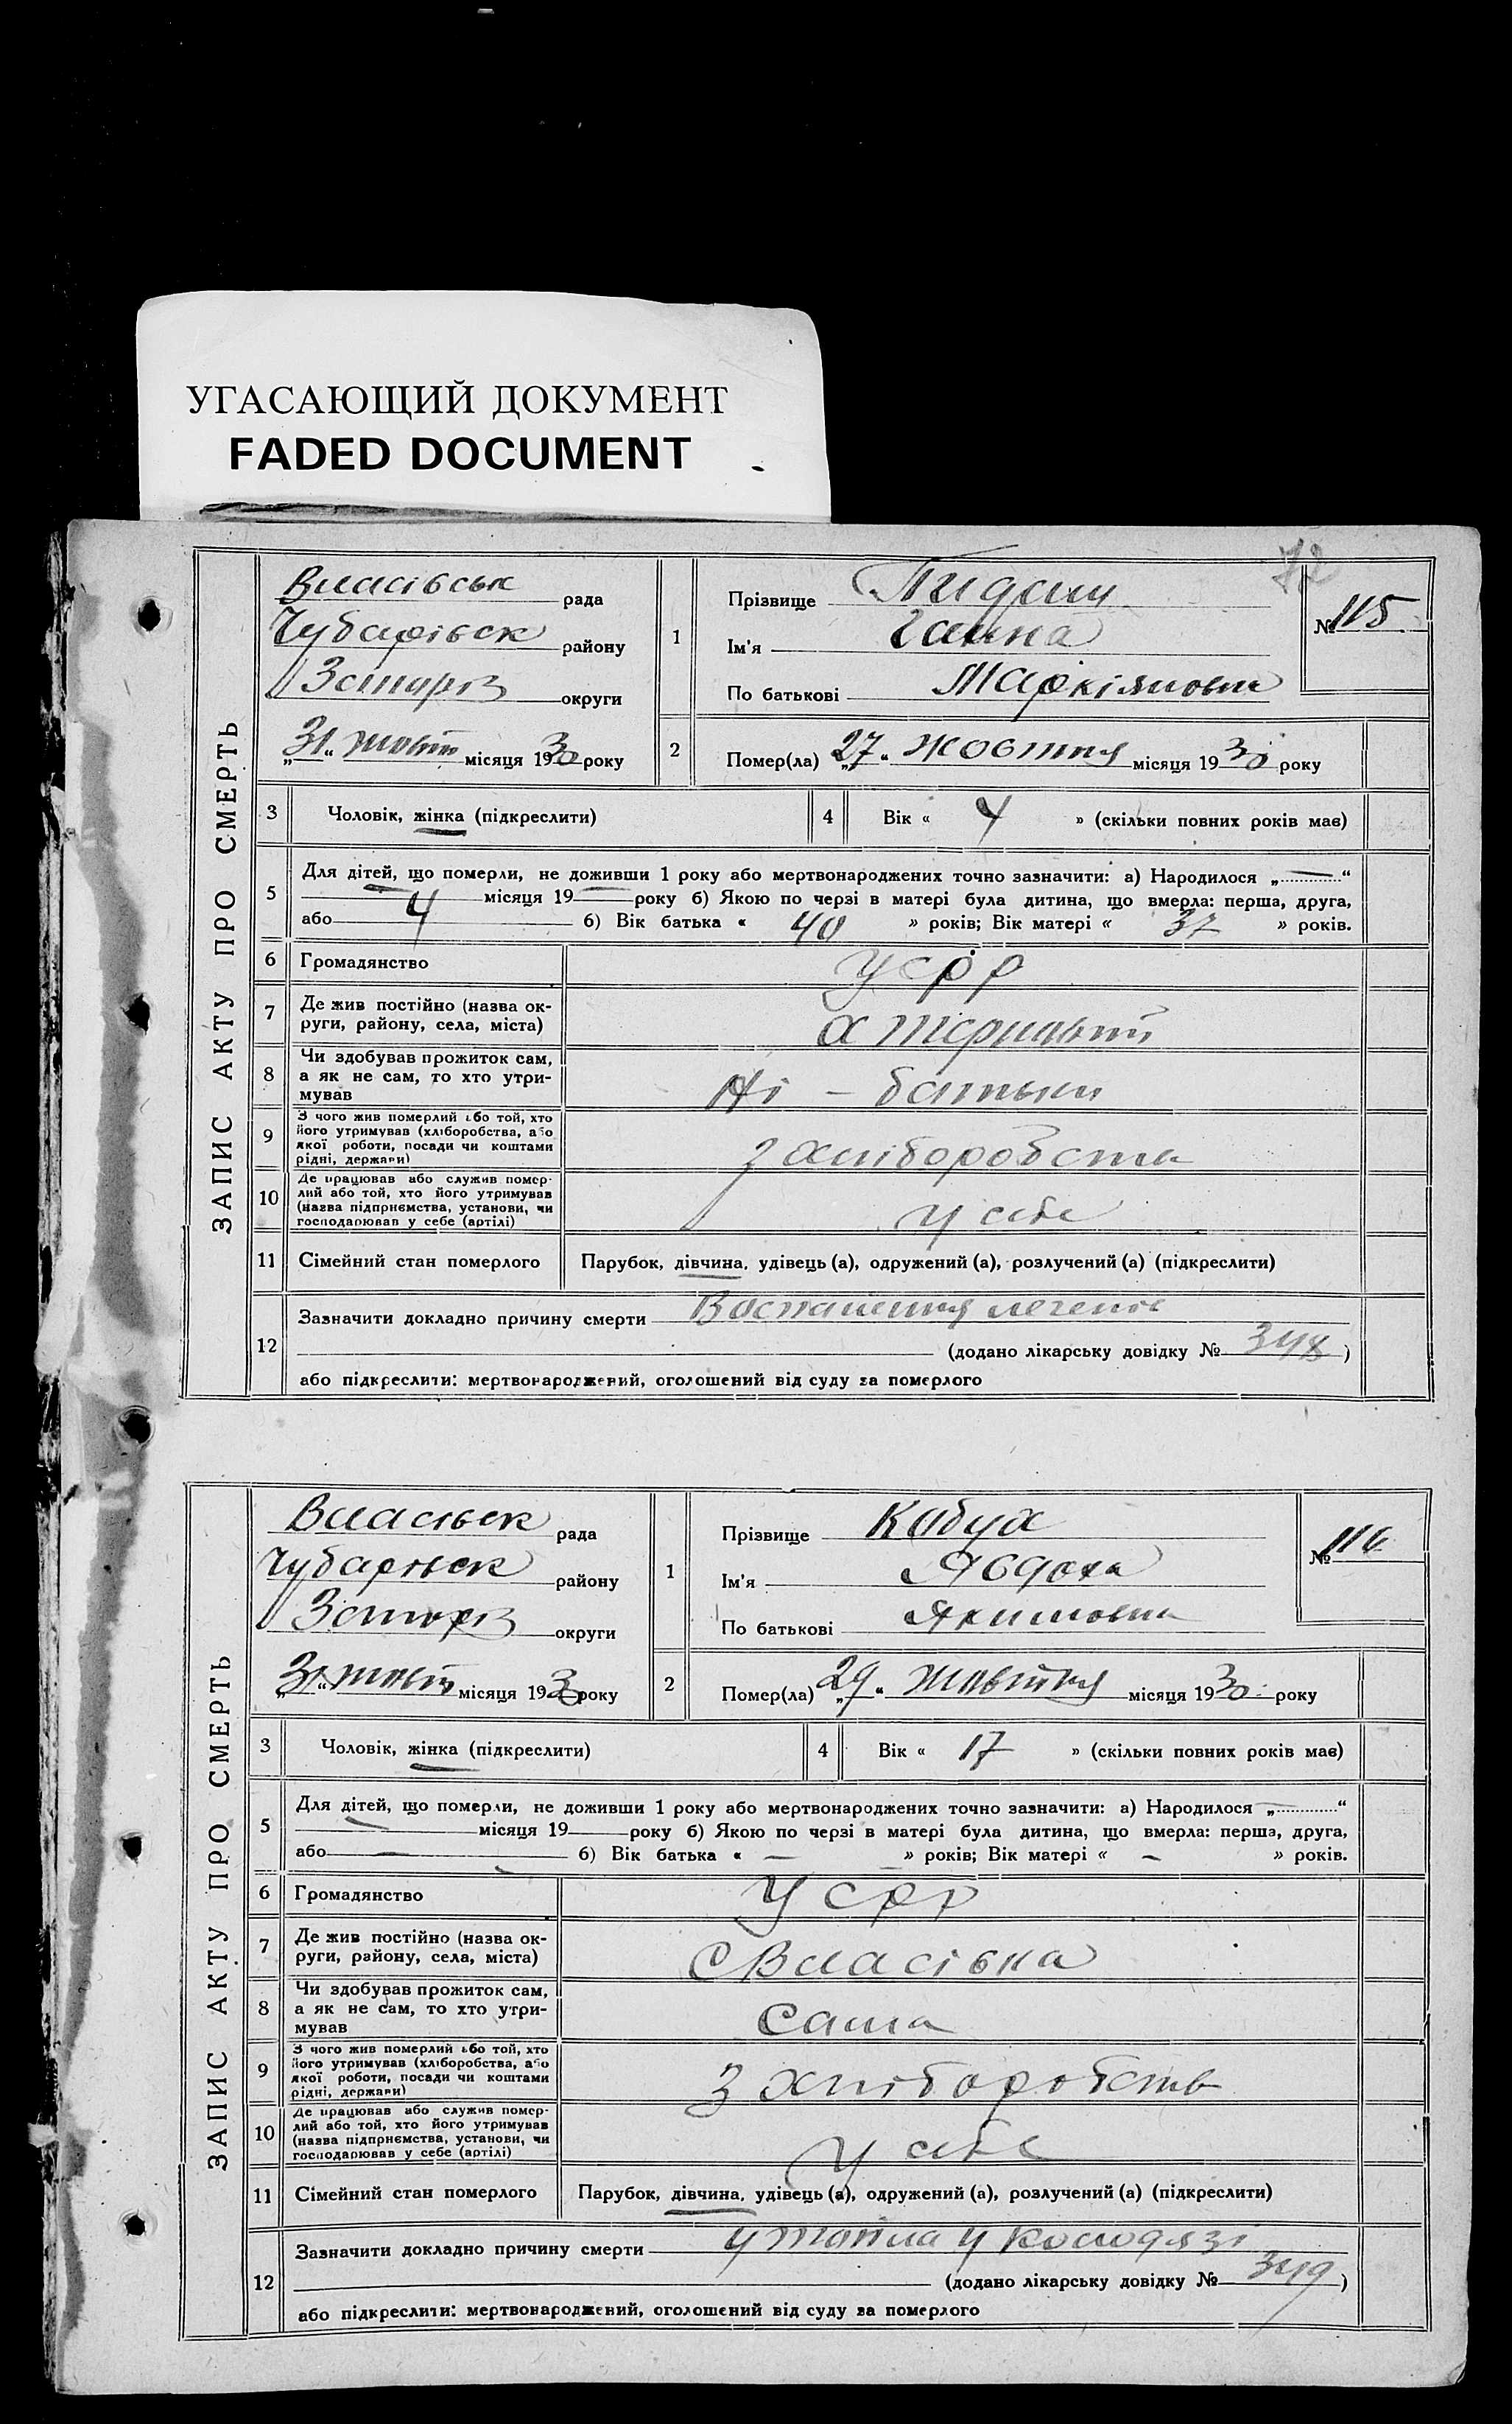 УГАСАЮЩИЙ ДОКУМЕНТ
FADED DOCUMENT
72
ЗАПИС АКТУ ПРО СМЕРТЬ
Власівськ рада
Чубарівськ району
Запоріз округи
„31“ жовтн місяця 1930 року
1
Прізвище
Ім'я Ганна
По батькові Маркіяновна
№ 115
2
Помер(ла) „27“ жовтня місяця 1930 року
3 Чоловік, жінка (підкреслити)
4 Вік « 4 » (скільки повних років має)
5 Для дітей, що померли, не доживши 1 року або мертвонароджених точно зазначити: а) Народилося „ — “
місяця 19 — року б) Якою по черзі в матері була дитина, що вмерла: перша, друга,
або 4 б) Вік батька « 40 » років; Вік матері « 37 » років.
6 Громадянство УСРР
7 Де жив постійно (назва ок-
руги, району, села, міста)
8 Чи здобував прожиток сам,
а як не сам, то хто утри-
мував
Ні – батьки
9 З чого жив померлий або той, хто
його утримував (хліборобства, або
якої роботи, посади чи коштами
рідні, держави)
з хліборобства
10 Де працював або служив помер-
лий або той, хто його утримував
(назва підприємства, установи, чи
господарював у себе (артілі)
у себе
11 Сімейний стан померлого Парубок, дівчина, удівець (а), одружений (а), розлучений (а) (підкреслити)
12 Зазначити докладно причину смерти Воспаления легенів
(додано лікарську довідку № 348)
або підкреслити: мертвонароджений, оголошений від суду за померлого
ЗАПИС АКТУ ПРО СМЕРТЬ
Власівськ рада
Чубарівськ району
Запоріз округи
„31“ жовтн місяця 1930 року
1
Прізвище Кобух
Ім'я Явдоха
По батькові Якимовна
№ 116
2
Помер(ла) „29“ жовтня місяця 1930 року
3 Чоловік, жінка (підкреслити)
4 Вік « 17 » (скільки повних років має)
5 Для дітей, що померли, не доживши 1 року або мертвонароджених точно зазначити: а) Народилося „ — “
— місяця 19 року б) Якою по черзі в матері була дитина, що вмерла: перша, друга,
або — б) Вік батька « — » років; Вік матері « — » років.
6 Громадянство УСРР
7 Де жив постійно (назва ок-
руги, району, села, міста)
с Власівка
8 Чи здобував прожиток сам,
а як не сам, то хто утри-
мував
Сама
9 З чого жив померлий або той, хто
його утримував (хліборобства, або
якої роботи, посади чи коштами
рідні, держави)
з хліборобств
10 Де працював або служив помер-
лий або той, хто його утримував
(назва підприємства, установи, чи
господарював у себе (артілі)
у себе
11 Сімейний стан померлого Парубок, дівчина, удівець (а), одружений (а), розлучений (а) (підкреслити)
12 Зазначити докладно причину смерти утопла у колодязі
(додано лікарську довідку № 349)
або підкреслити: мертвонароджений, оголошений від суду за померлого